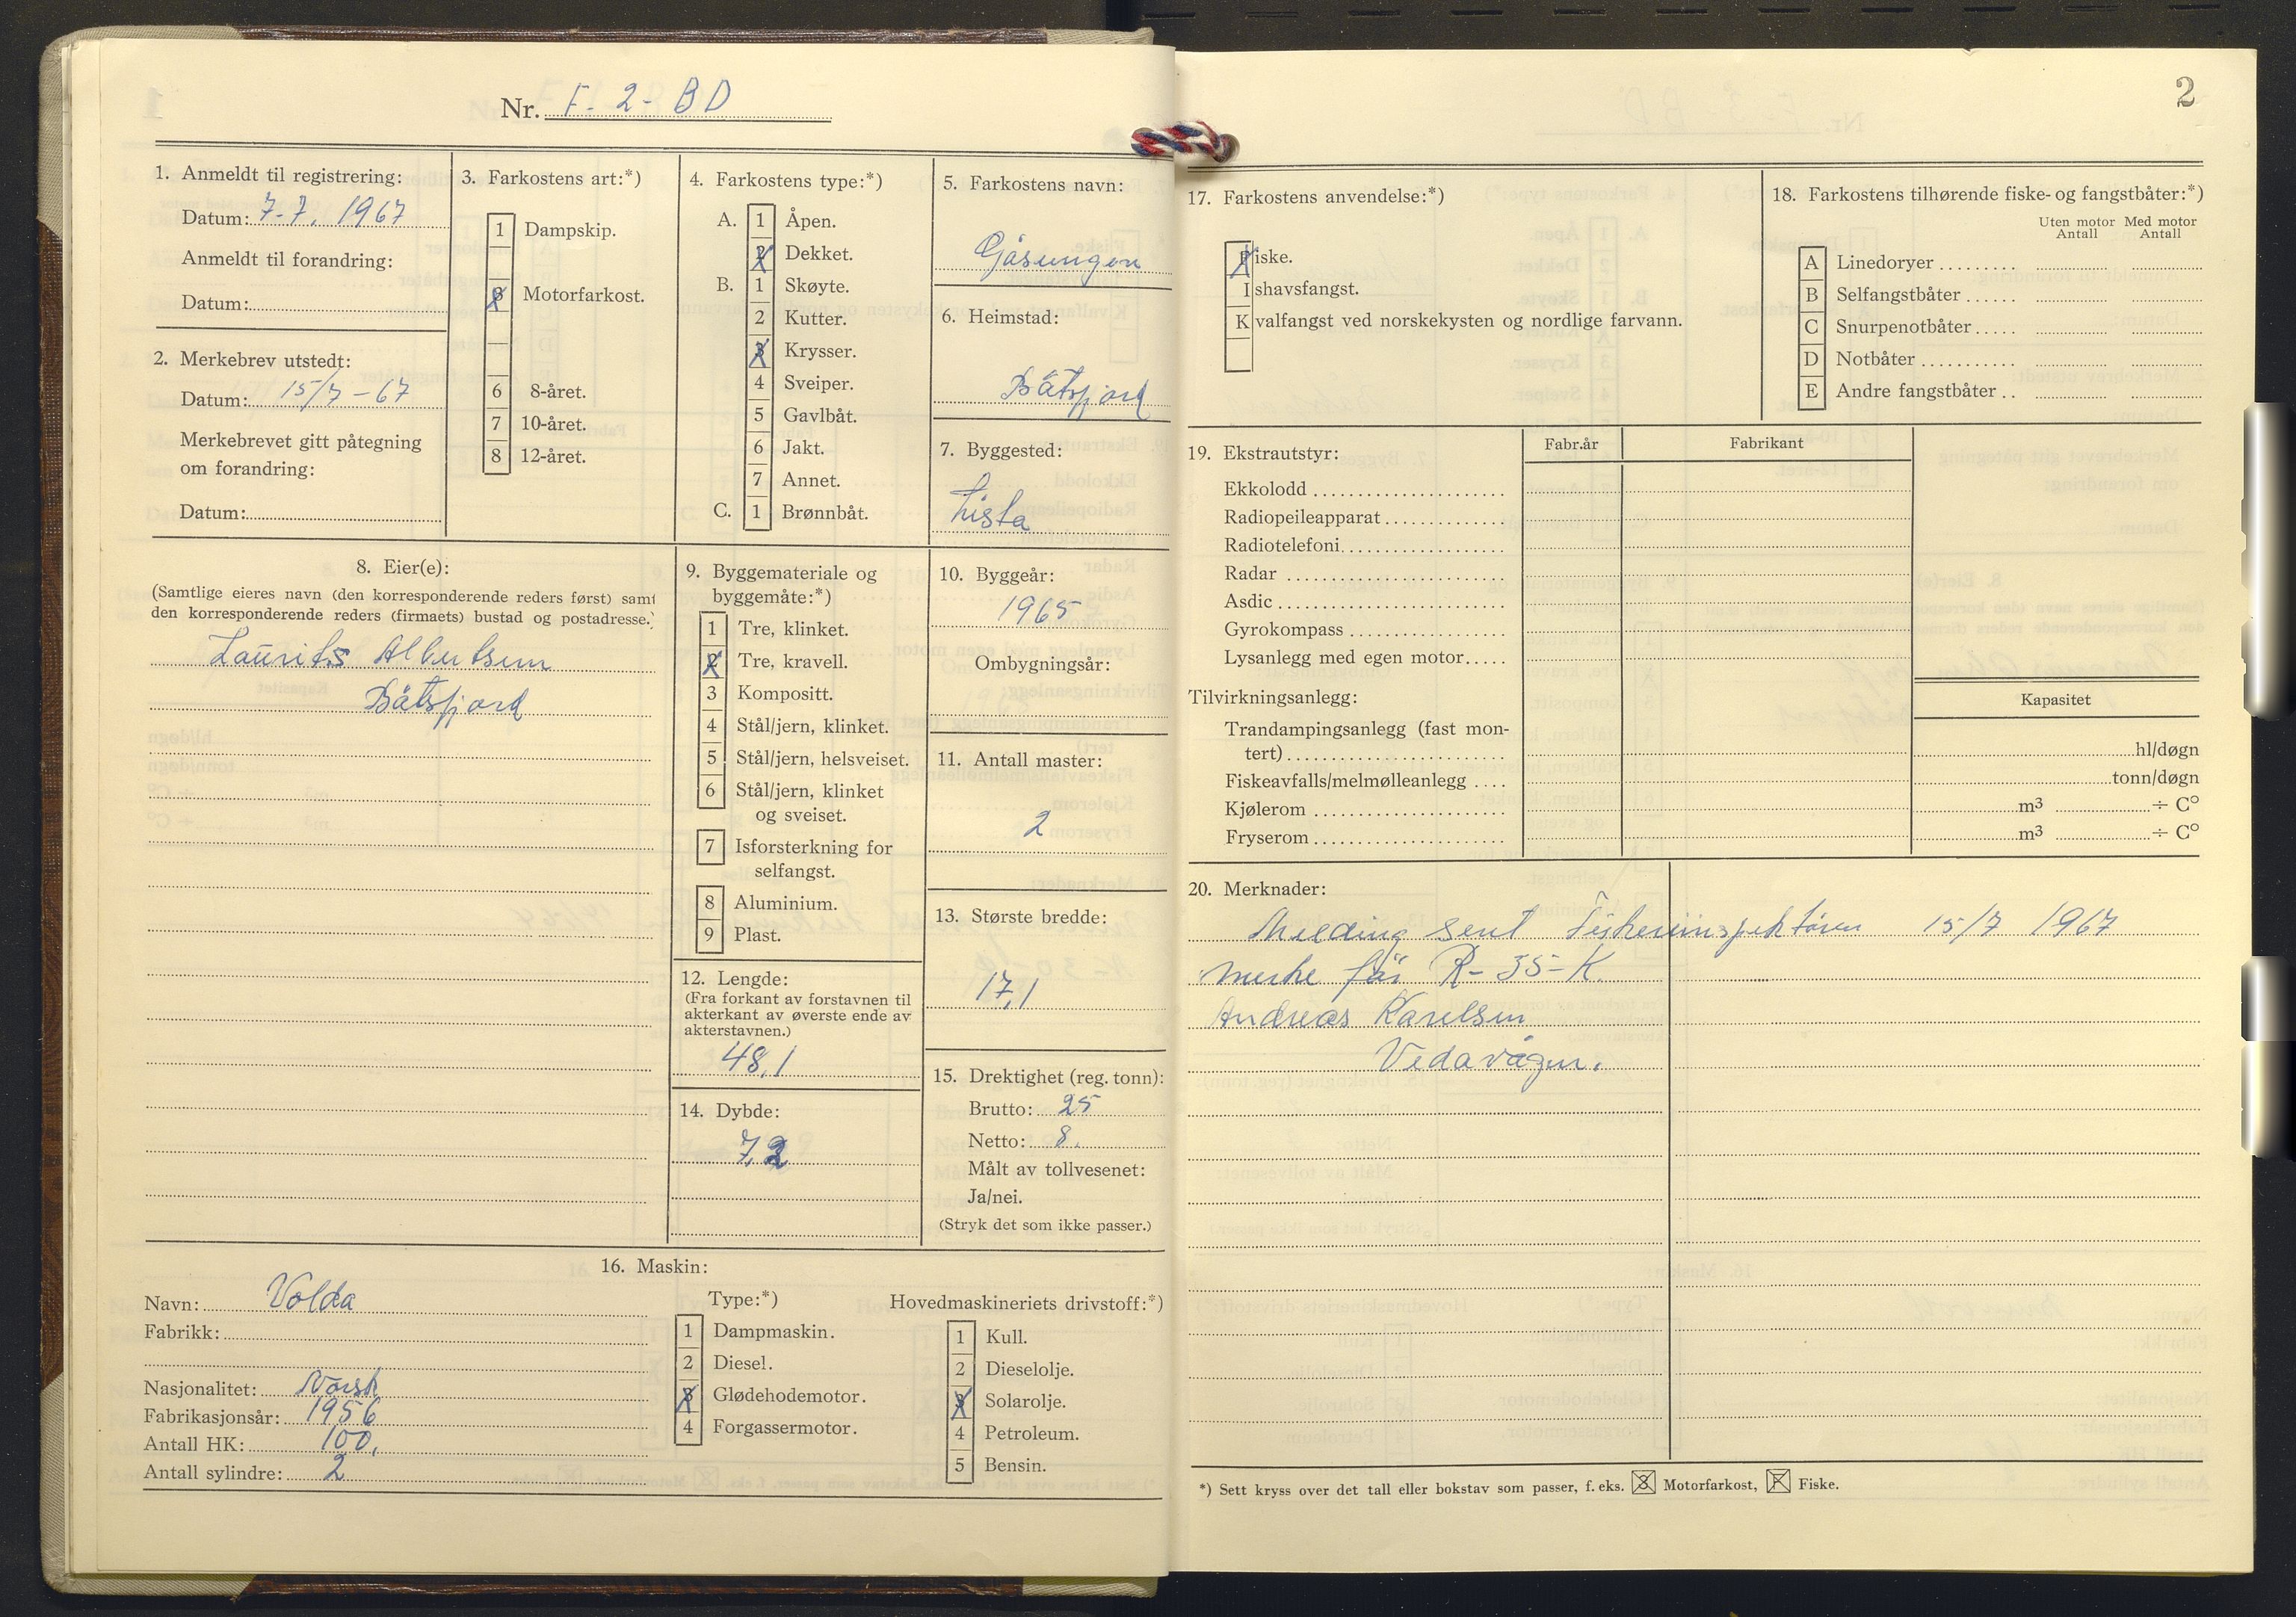 Nr. F- 2- BD
1. Anmeldt til registrering:
Datum: 7-7. 1967
Anmeldt til forandring:
Datum:
2. Merkebrev utstedt:
Datum: 15/7 - 67
Merkebrevet gitt påtegning
om forandring:
Datum:
3. Farkostens art:*)
1 Dampskip.
3 Motorfarkost.
6 8-året.
7 10-året.
8 12-året.
4. Farkostens type:*)
A. 1 Åpen.
2 Dekket.
B. 1 Skøyte.
2 Kutter.
3 Krysser.
4 Sveiper.
5 Gavlbåt.
6 Jakt.
7 Annet.
C. 1 Brønnbåt.
5. Farkostens navn:
Gåsungen
6. Heimstad:
Båtsfjord
7. Byggested:
Lista
8. Eier(e):
(Samtlige eieres navn (den korresponderende reders først) samt
den korresponderende reders (firmaets) bustad og postadresse.)
Laurits Albertsen
Båtsfjord
9. Byggemateriale og
byggemåte:*)
1 Tre, klinket.
2 Tre, kravell.
3 Kompositt.
4 Stål/jern, klinket.
5 Stål/jern, helsveiset.
6 Stål/jern, klinket
og sveiset.
7 Isforsterkning for
selfangst.
8 Aluminium.
9 Plast.
10. Byggeår:
1965
Ombygningsår:
11. Antall master:
2
12. Lengde:
(Fra forkant av forstavnen til
akterkant av øverste ende av
akterstavnen.)
48,1
13. Største bredde:
17,1
14. Dybde:
7,2
15. Drektighet (reg. tonn):
Brutto: 25
Netto: 8.
Målt av tollvesenet:
Ja/nei.
(Stryk det som ikke passer.)
16. Maskin:
Navn: Volda
Fabrikk:
Nasjonalitet: Norsk
Fabrikasjonsår: 1956
Antall HK: 100,
Antall sylindre: 2
Type:*)
1 Dampmaskin.
2 Diesel.
3 Glødehodemotor.
4 Forgassermotor.
Hovedmaskineriets drivstoff:*)
1 Kull.
2 Dieselolje.
3 Solarolje.
4 Petroleum.
5 Bensin.
2
17. Farkostens anvendelse:*)
Fiske.
Ishavsfangst.
Kvalfangst ved norskekysten og nordlige farvann.
18. Farkostens tilhørende fiske- og fangstbåter:*)
Uten motor Med motor
Antall Antall
A Linedoryer
B Selfangstbåter
C Snurpenotbåter
D Notbåter
E Andre fangstbåter
19. Ekstrautstyr:
Fabr.år Fabrikant
Ekkolodd
Radiopeileapparat
Radiotelefoni
Radar
Asdic
Gyrokompass
Lysanlegg med egen motor
Tilvirkningsanlegg:
Kapasitet
Trandampingsanlegg (fast mon-
tert) hl/døgn
Fiskeavfalls/melmølleanlegg tonn/døgn
Kjølerom m³ ÷ C°
Fryserom m³ ÷ C°
20. Merknader:
Melding sent Fiskeriinspektøren 15/7 1967
merke før R- 35- K.
Andreas Karelsen
Vedavågen.
*) Sett kryss over det tall eller bokstav som passer, f. eks. 3 Motorfarkost, F Fiske.